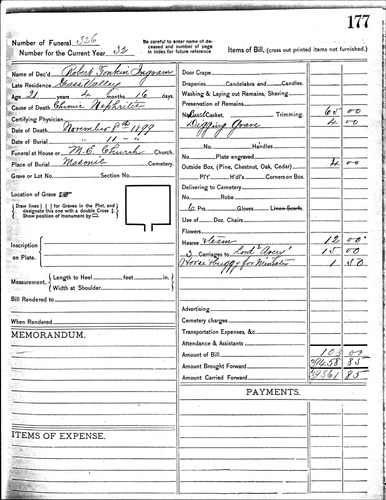 177
Number of Funeral 326
Number for the Current Year 32
Be careful to enter name of deceased and number of page in index for future reference
Items of Bill, (cross out printed items not furnished.)
Name of Dec'd Robert Tonkin Ingram
Late Residence Grass Valley
Age 21 years 4 months 16 days
Cause of Death Chronic Nephritis
Certifying Physician
Date of Death November 8th 1899
Date of Burial 11 - "
Funeral at House or M.E. Church Church.
Place of Burial Masonic Cemetery.
Grave or Lot No. Section No.
Location of Grave
Draw lines [ ] for Graves in the Plot, and designate this one with a double Cross
Show position of monument by
Inscription on Plate.
Measurement. Length to Heel feet in.
Width at Shoulder
Bill Rendered to
When Rendered
MEMORANDUM.
ITEMS OF EXPENSE.
Door Crape
Draperies Candelabra and Candles.
Washing & Laying out Remains, Shaving
Preservation of Remains
No. Casket. Trimming. 65 00
Digging Grave 4 00
No. Handles
No. Plate engraved
Outside Box, (Pine, Chestnut, Oak, Cedar) 4 00
Pl't'r H'd'ls Corners on Box.
Delivering to Cemetery
No. Robe
6 Prs. Gloves Linen Scarfs
Use of Doz. Chairs
Flowers
Hearse & team 12 00
3 Carriages to 15 00
Horse & buggy for Minister 1 50
Advertising
Cemetery charges
Transportation Expenses, &c
Attendance & Assistants
Amount of Bill 103 00
Amount Brought Forward 29458 85
Amount Carried Forward 29561 85
PAYMENTS.